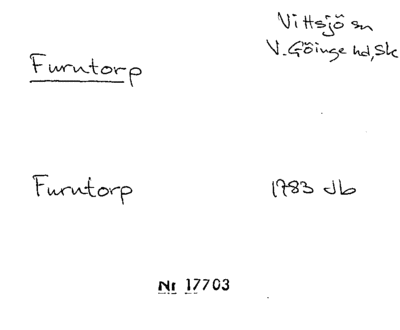 Vittsjö sn
V. Göinge hd, Sk
Furutorp
Furutorp
1783 db
Nr 17703